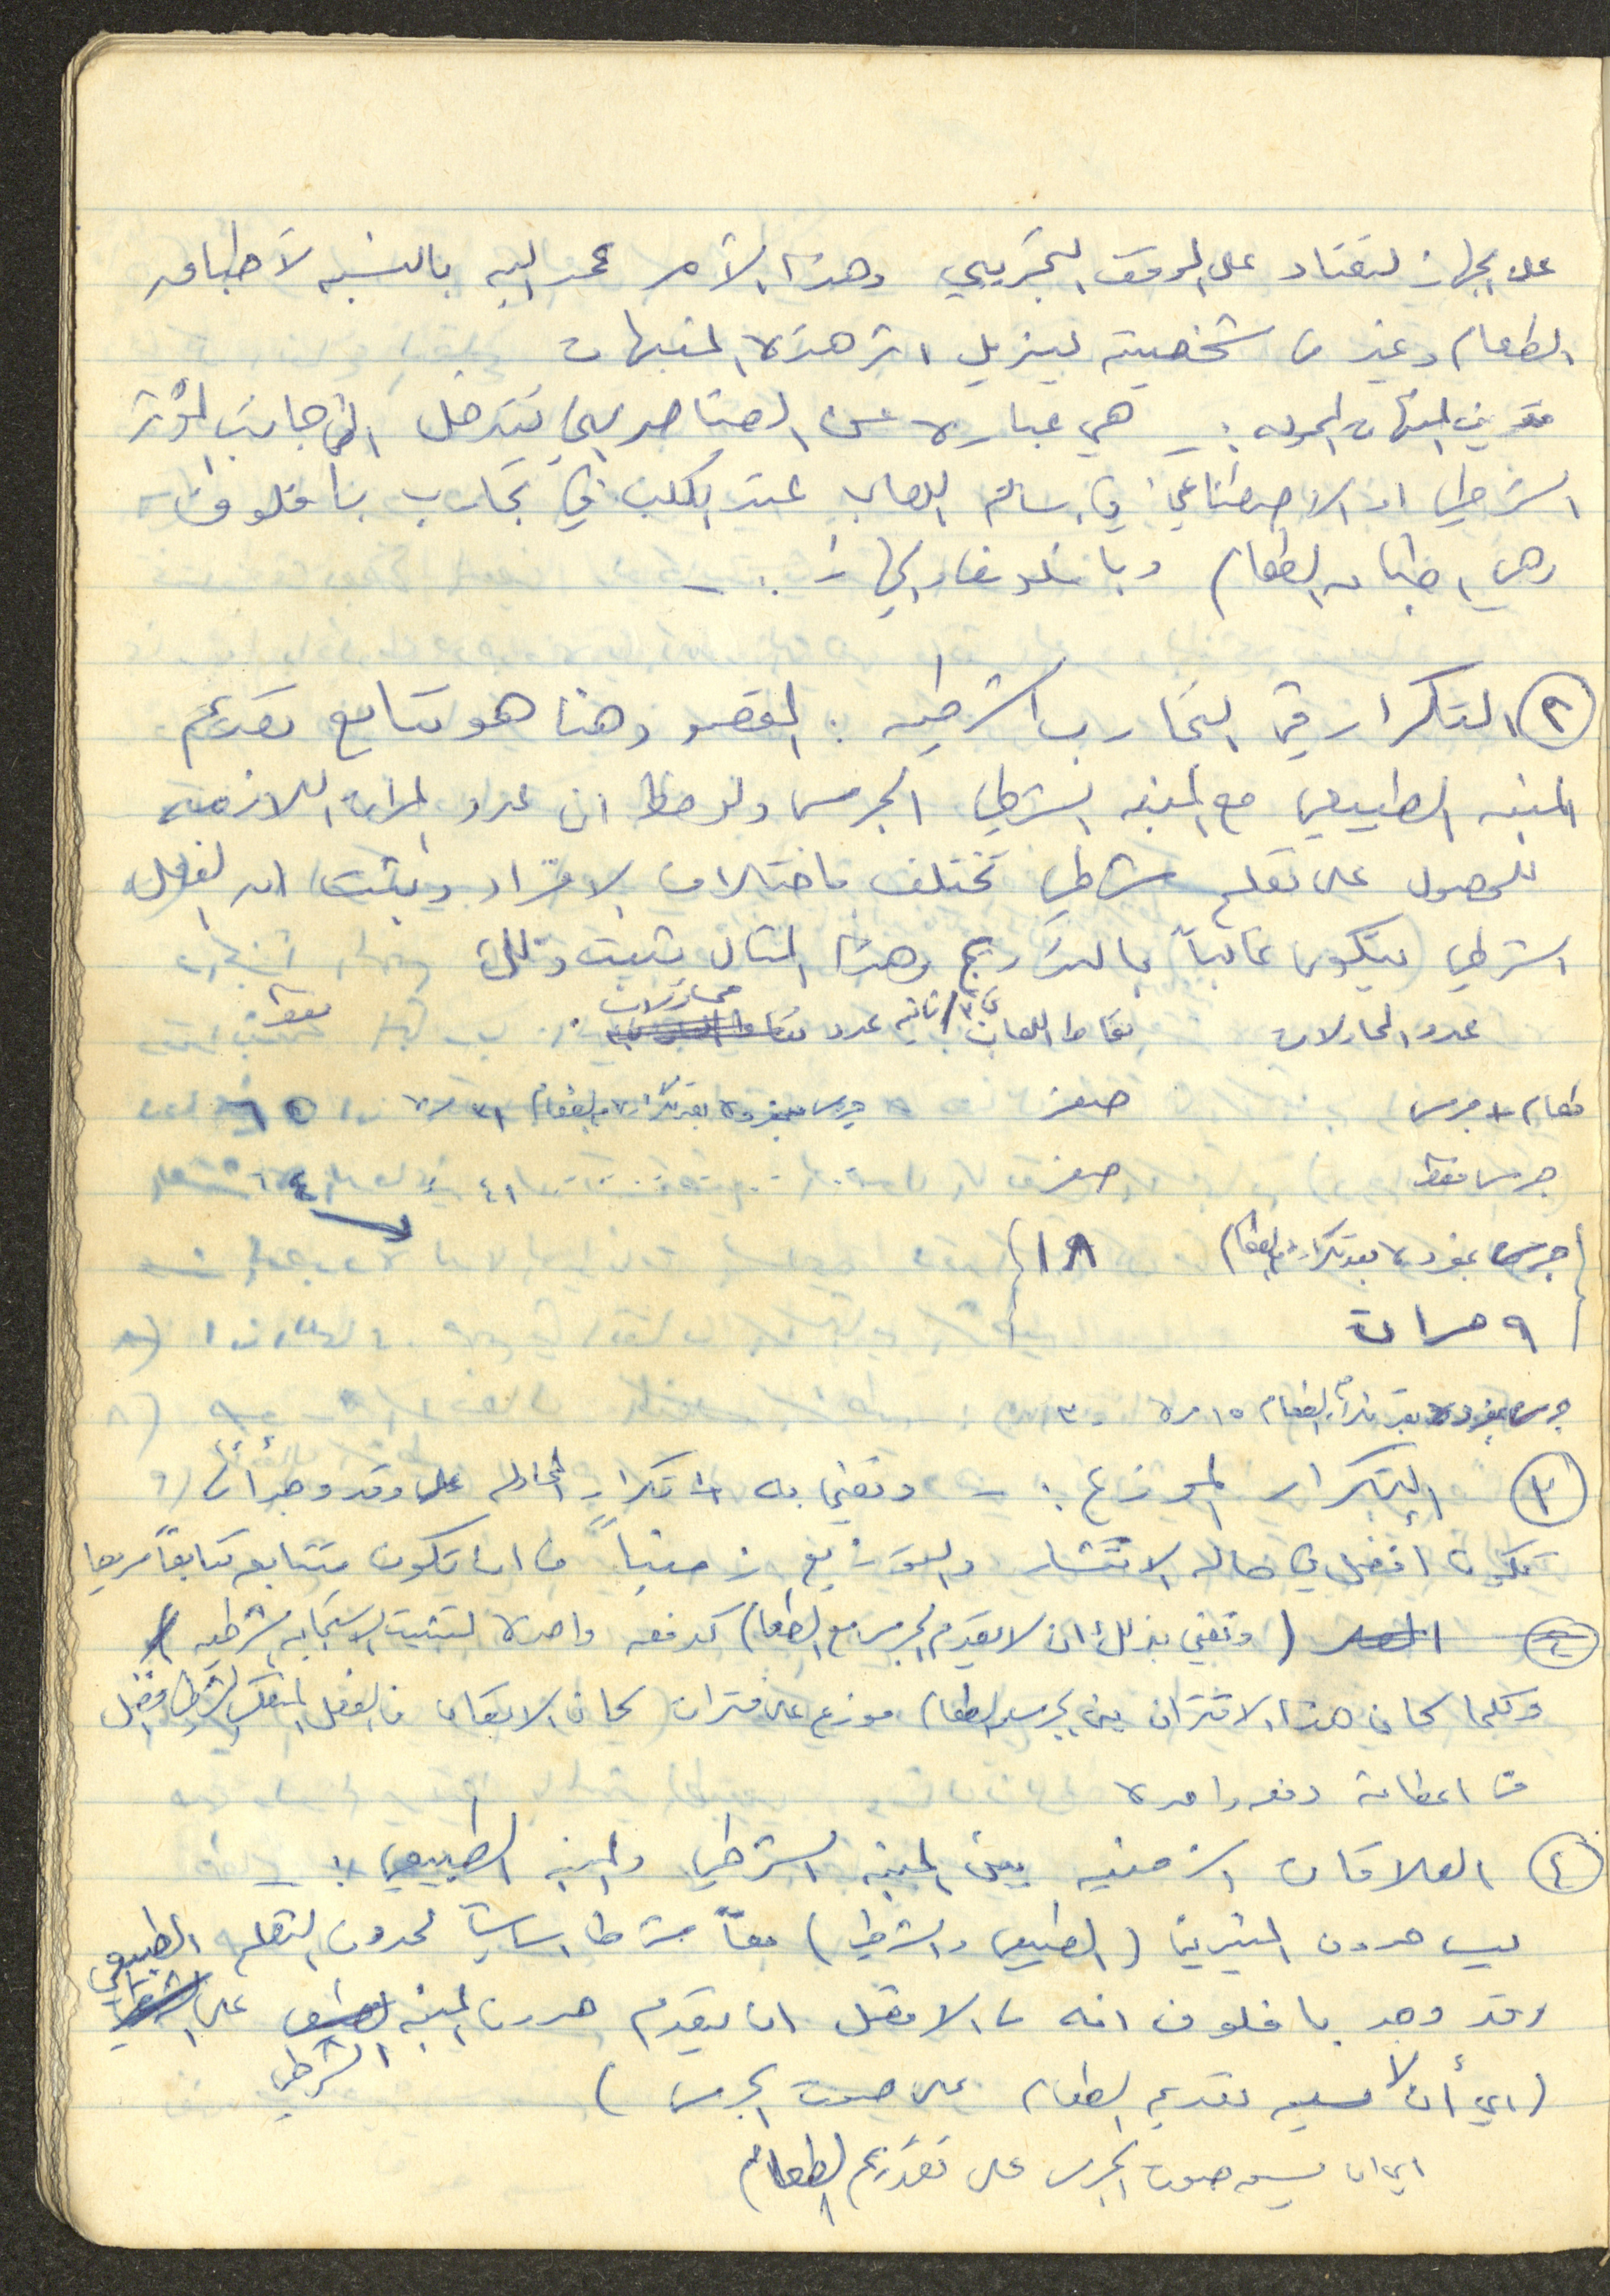 على الجهاز لتعتاد على الموقف التجريبي وهذا الأمر عمد اليه بالنسبه لأطباق
الطعام وغير من شخصيته ليزيل اثر هذه المنبهات
تعريف المنبهات المحركه :ـ هي عباره عن العناصر التي تتدخل الى جانب المؤثر
الشرطي او الاصطناعي في اساله اللعاب عند الكلب في تجارب بافلوف
وهي اطباق الطعام وبافلوف والجهاز . ـ
٢ التكرار في التجارب الشرطيه : المقصود هنا هو تتابع تقديم
المنبه الطبيعي مع المنبه الشرطي الجرس ولوحظ ان عدد المرات اللازمه
للحصول على تعلم شرطي تختلف باختلاف الافراد وثبت ان الفعل
الشرطي يتكون غالباً بالتدريج وهذا المثال يثبت ذلك
عدد المحاولات نقاط اللعاب / ثانيه عدد محاولات نقط
طعام + جرس صفر جرس بمفرده بعد تكراره مع الطعام ٣١ مره ٦٥
جرس فقط صفر ٤١ ٦٤
جرس بمفرده بعد تكراره مع الطعام ١٨
٩ مرات
جرس بمفرده بعد تكراره مع الطعام ١٥ مره ٣٠
٣ التكرار الموزع : ـ ونعني به ان تكرار المحاوله على وقد وجد ان
تكون افضل في حاله الانتشار والتوزيع زمنياً من ان تكون متتابعه تتابعاً سريعا
٤ (ونعني بذلك ان لا يقدم الجرس مع الطعام) كدفعه واحده لتثبيت الاستجابه الشرطيه
وكلما كان هذا الاقتران بين الجرس والطعام موزع على فترات كان الاتقان من الفعل المنعكس الشرطي افضل
من اعطائه دفعه واحده
٤ العلاقات الزمنيه بين المنبه الشرطي والمنبه الطبيعي : ـ
ليس حدوث المثيرين (الطبيعي والشرطي) معاً شرطا اساسياً لحدوث التعلم
وقد وجد بافلوف انه من الافضل ان يقدم حدوث المنبه الشرطي على الطبيعي
(اي أن لا يسبق تقديم الطعام على صوت الجرس)
اي ان يسبق صوت الجرس على تقديم الطعام